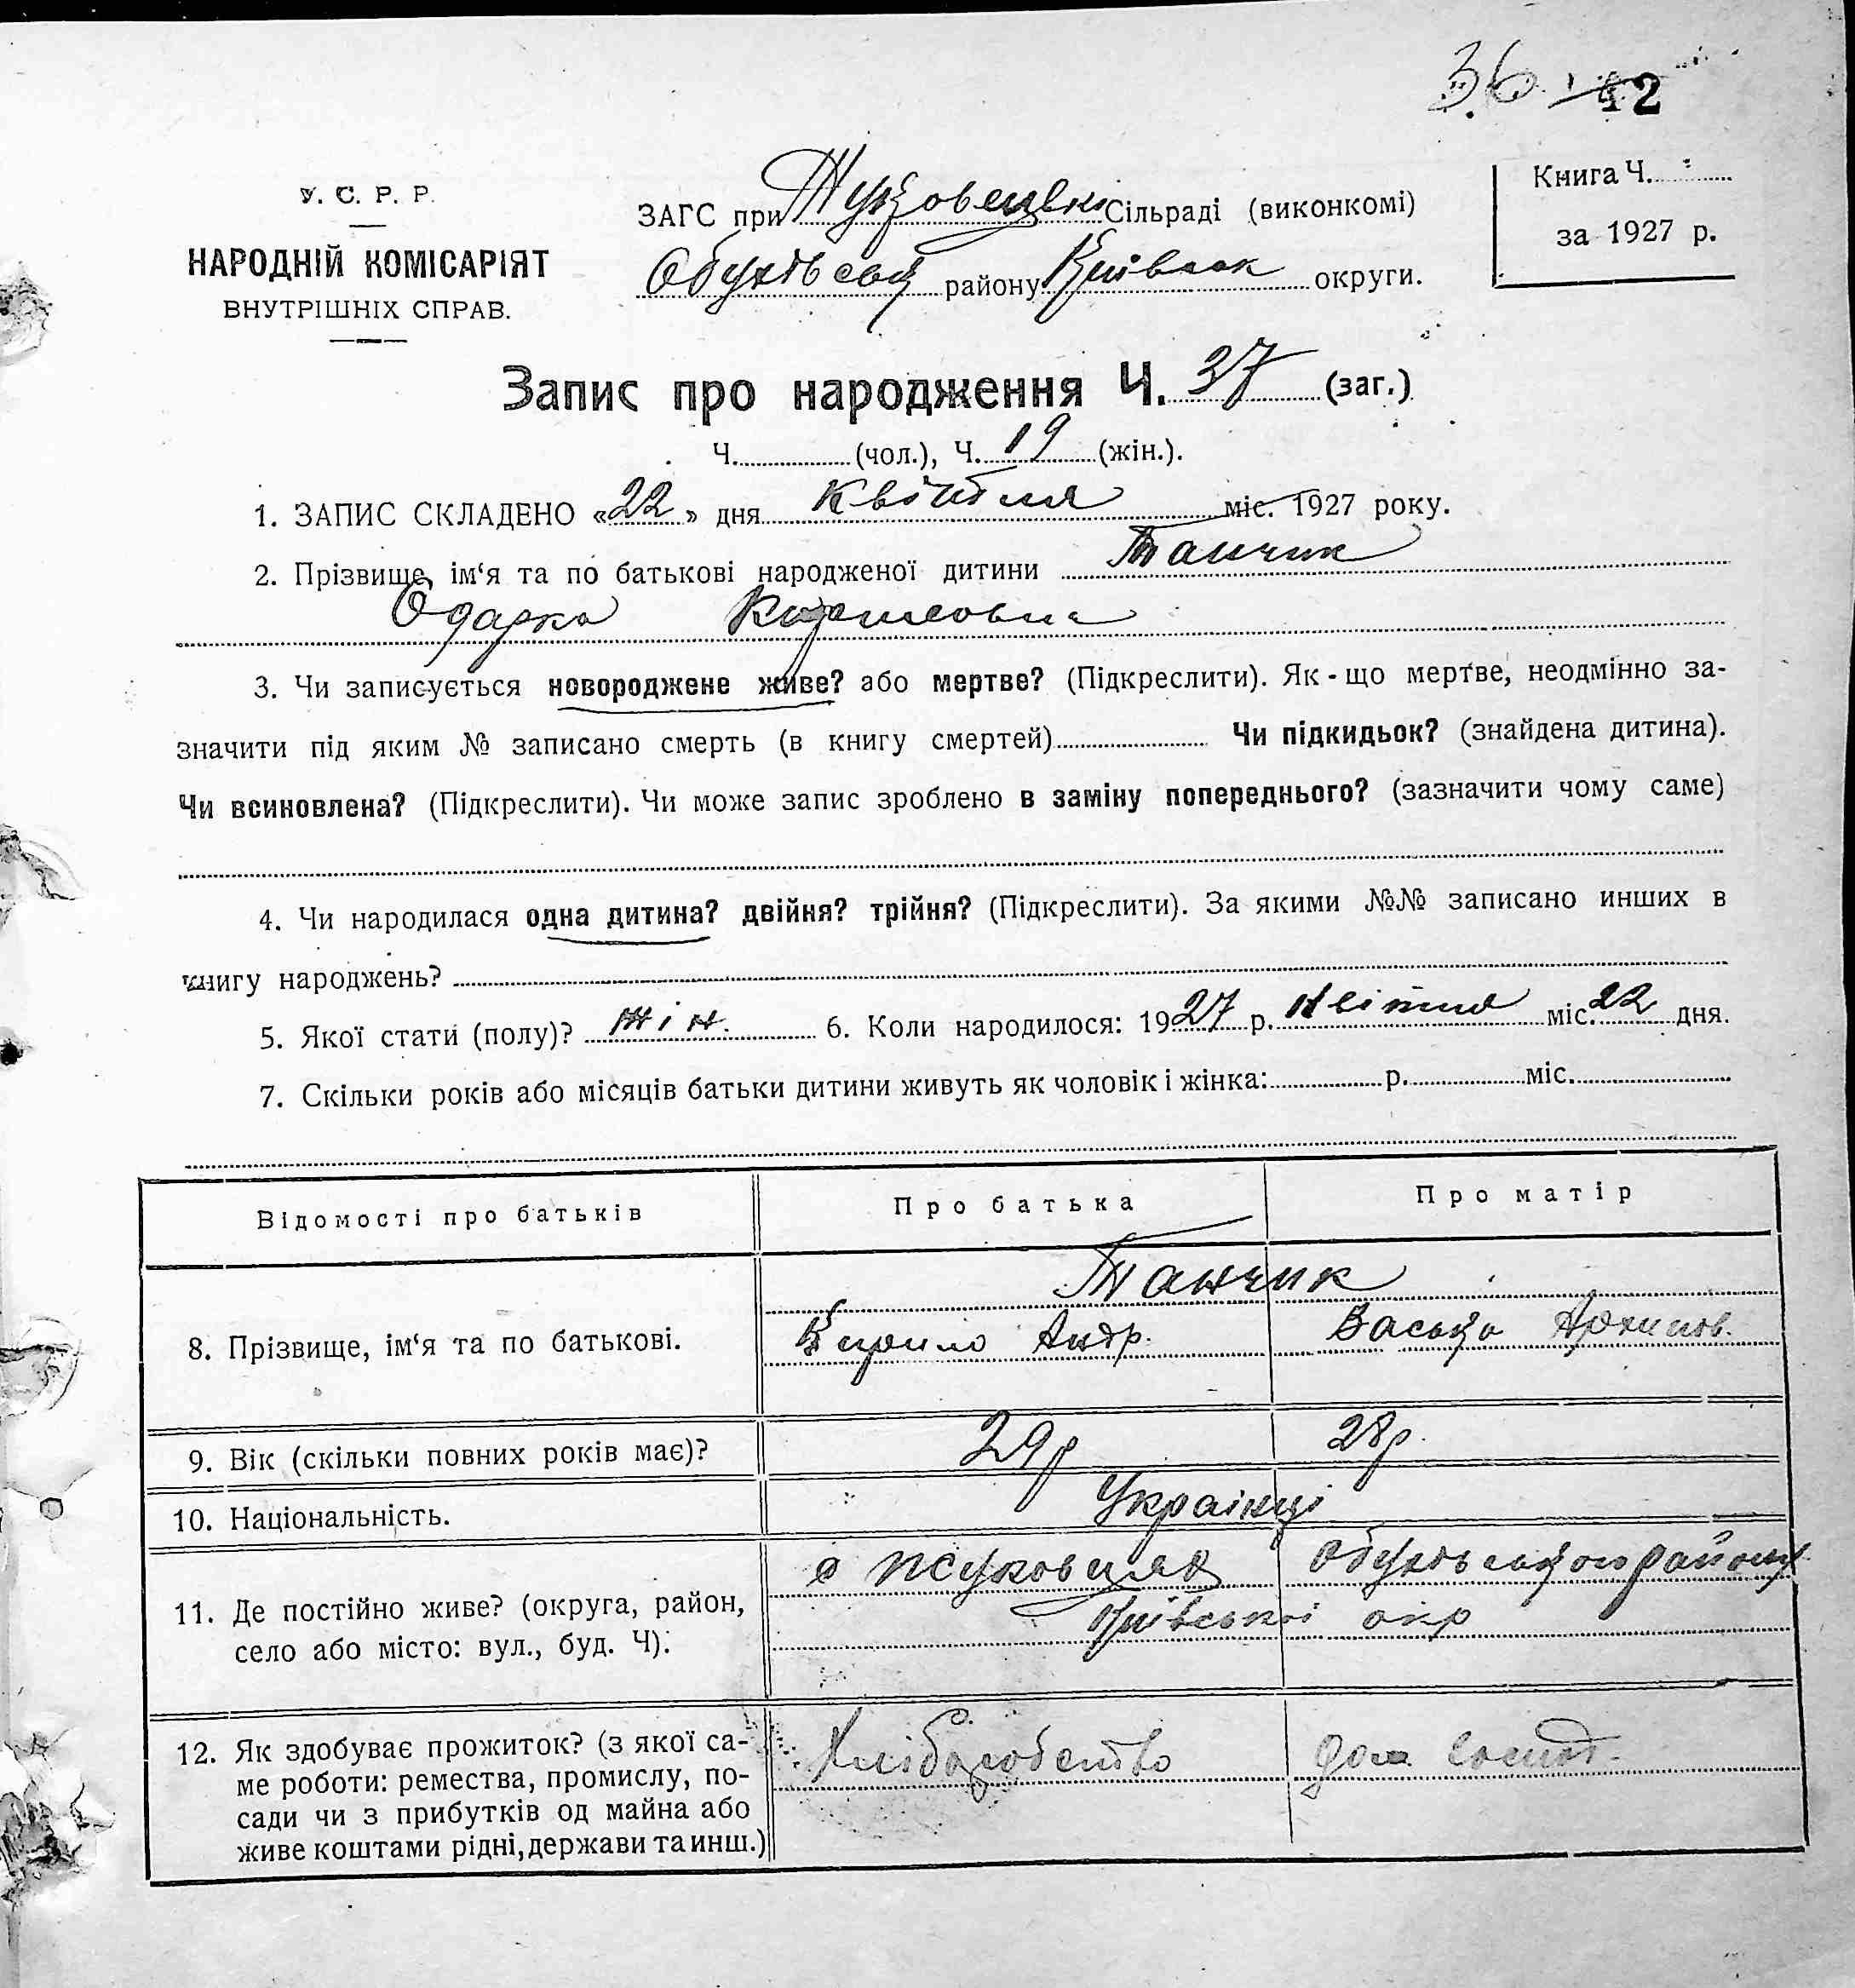 36 42
У. С. Р. Р.
НАРОДНІЙ КОМІСАРІЯТ
ВНУТРІШНІХ СПРАВ.
ЗАГС при Жуковецькі Сільраді (виконкомі)
Обухівськ району Київськ округи.
Книга Ч.
за 1927 р.
Запис про народження Ч. 37 (заг.)
Ч. (чол.), Ч. 19 (жін.).
1. ЗАПИС СКЛАДЕНО «22» дня Квітня міс. 1927 року.
2. Прізвище, ім‘я та по батькові народженої дитини Танчик
Одарка Кириловна
3. Чи записується новороджене живе? або мертве? (Підкреслити). Як-що мертве, неодмінно за-
значити під яким № записано смерть (в книгу смертей) Чи підкидьок? (знайдена дитина).
Чи всиновлена? (Підкреслити). Чи може запис зроблено в заміну попереднього? (зазначити чому саме)
4. Чи народилася одна дитина? двійня? трійня? (Підкреслити). За якими №№ записано инших в
книгу народжень?
5. Якої стати (полу)? жін. 6. Коли народилося: 1927 р. Квітня міс. 22 дня.
7. Скільки років або місяців батьки дитини живуть як чоловік і жінка: р. міс.
Відомості про батьків Про батька Про матір
Танчик
8. Прізвище, ім‘я та по батькові. Кирило Андр. Васька Архипов.
9. Вік (скільки повних років має)? 29р 28р.
10. Національність. Українці
11. Де постійно живе? (округа, район,
село або місто: вул., буд. Ч).
с Жуковцях Обухівського району
Київської окр
12. Як здобуває прожиток? (з якої са-
ме роботи: ремества, промислу, по-
сади чи з прибутків од майна або
живе коштами рідні, держави та инш.)
Хліборобство дом. господ.